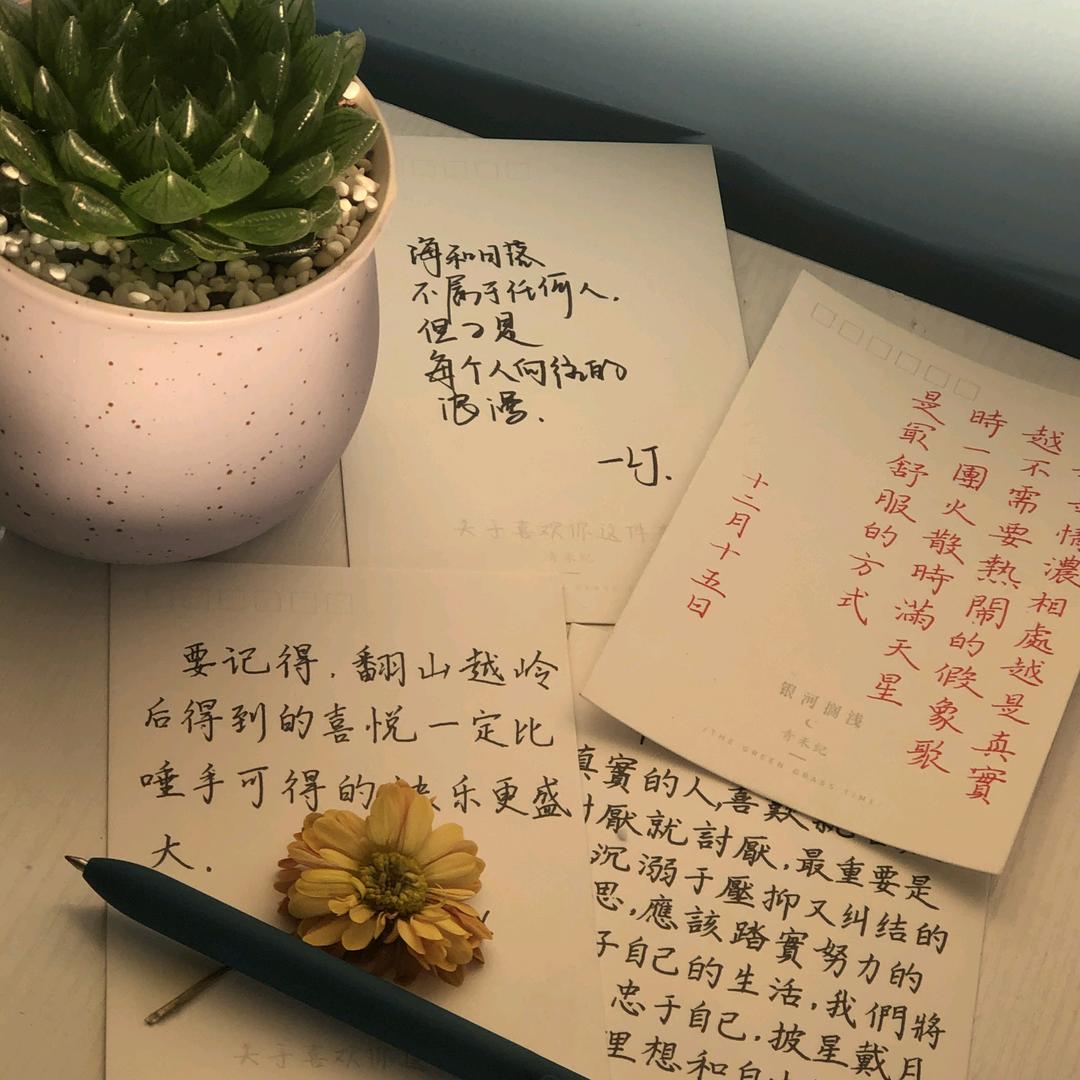 海和日落
不属于任何人.
但可是
每个人向往的
浪漫.
一灯.
关于喜欢你这件
青禾纪
情濃相處越是真實
越不需要熱鬧的假象歌
時一團火散時滿天星
是最舒服的方式
十二月十五日
银河搁浅
青禾纪
THE GREEN GRASS TIME
要记得.翻山越岭
后得到的喜悦一定比
唾手可得的快乐更盛
大.
关于喜欢你
真實的人,喜歡就
討厭就討厭,最重要是
沉溺于壓抑又纠结的
思,應該踏實努力的
自己的生活,我們將
忠于自己.披星戴月
理想和自